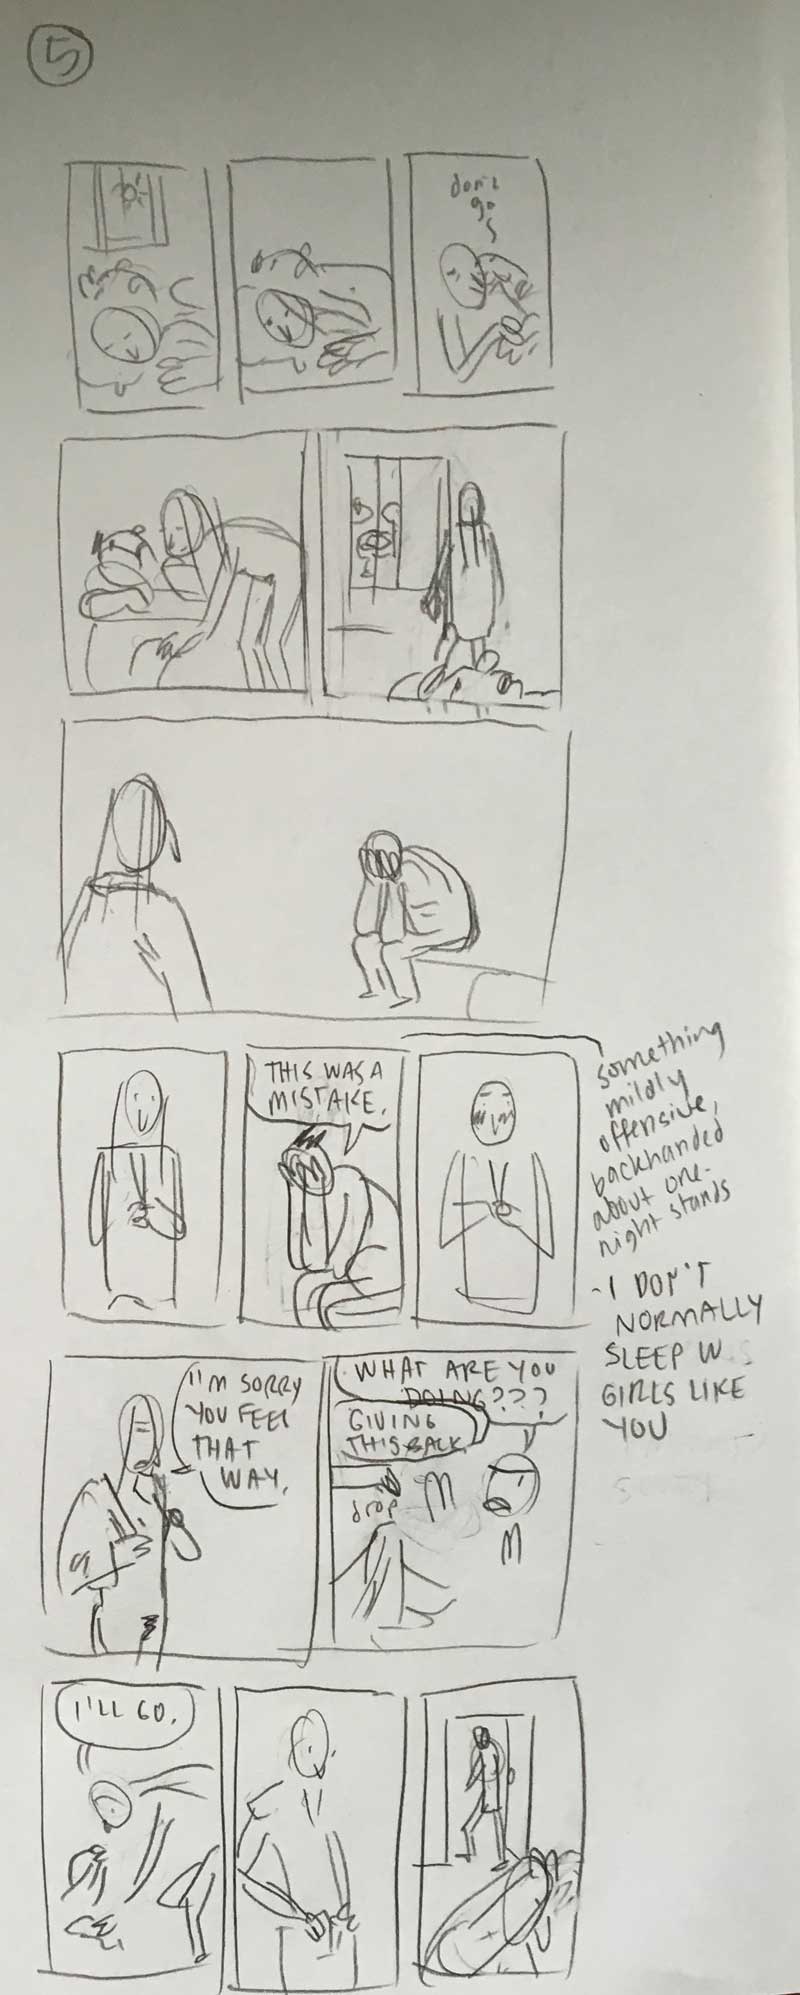 5
don't
go
THIS WAS A
MISTAKE.
something
mildly
offensive,
backhanded
about one-
night stands
- I DON'T
NORMALLY
SLEEP W
GIRLS LIKE
YOU
I'M SORRY
YOU FEEL
THAT
WAY.
WHAT ARE YOU
DOING???
GIVING
THIS BACK
drop
I'LL GO.